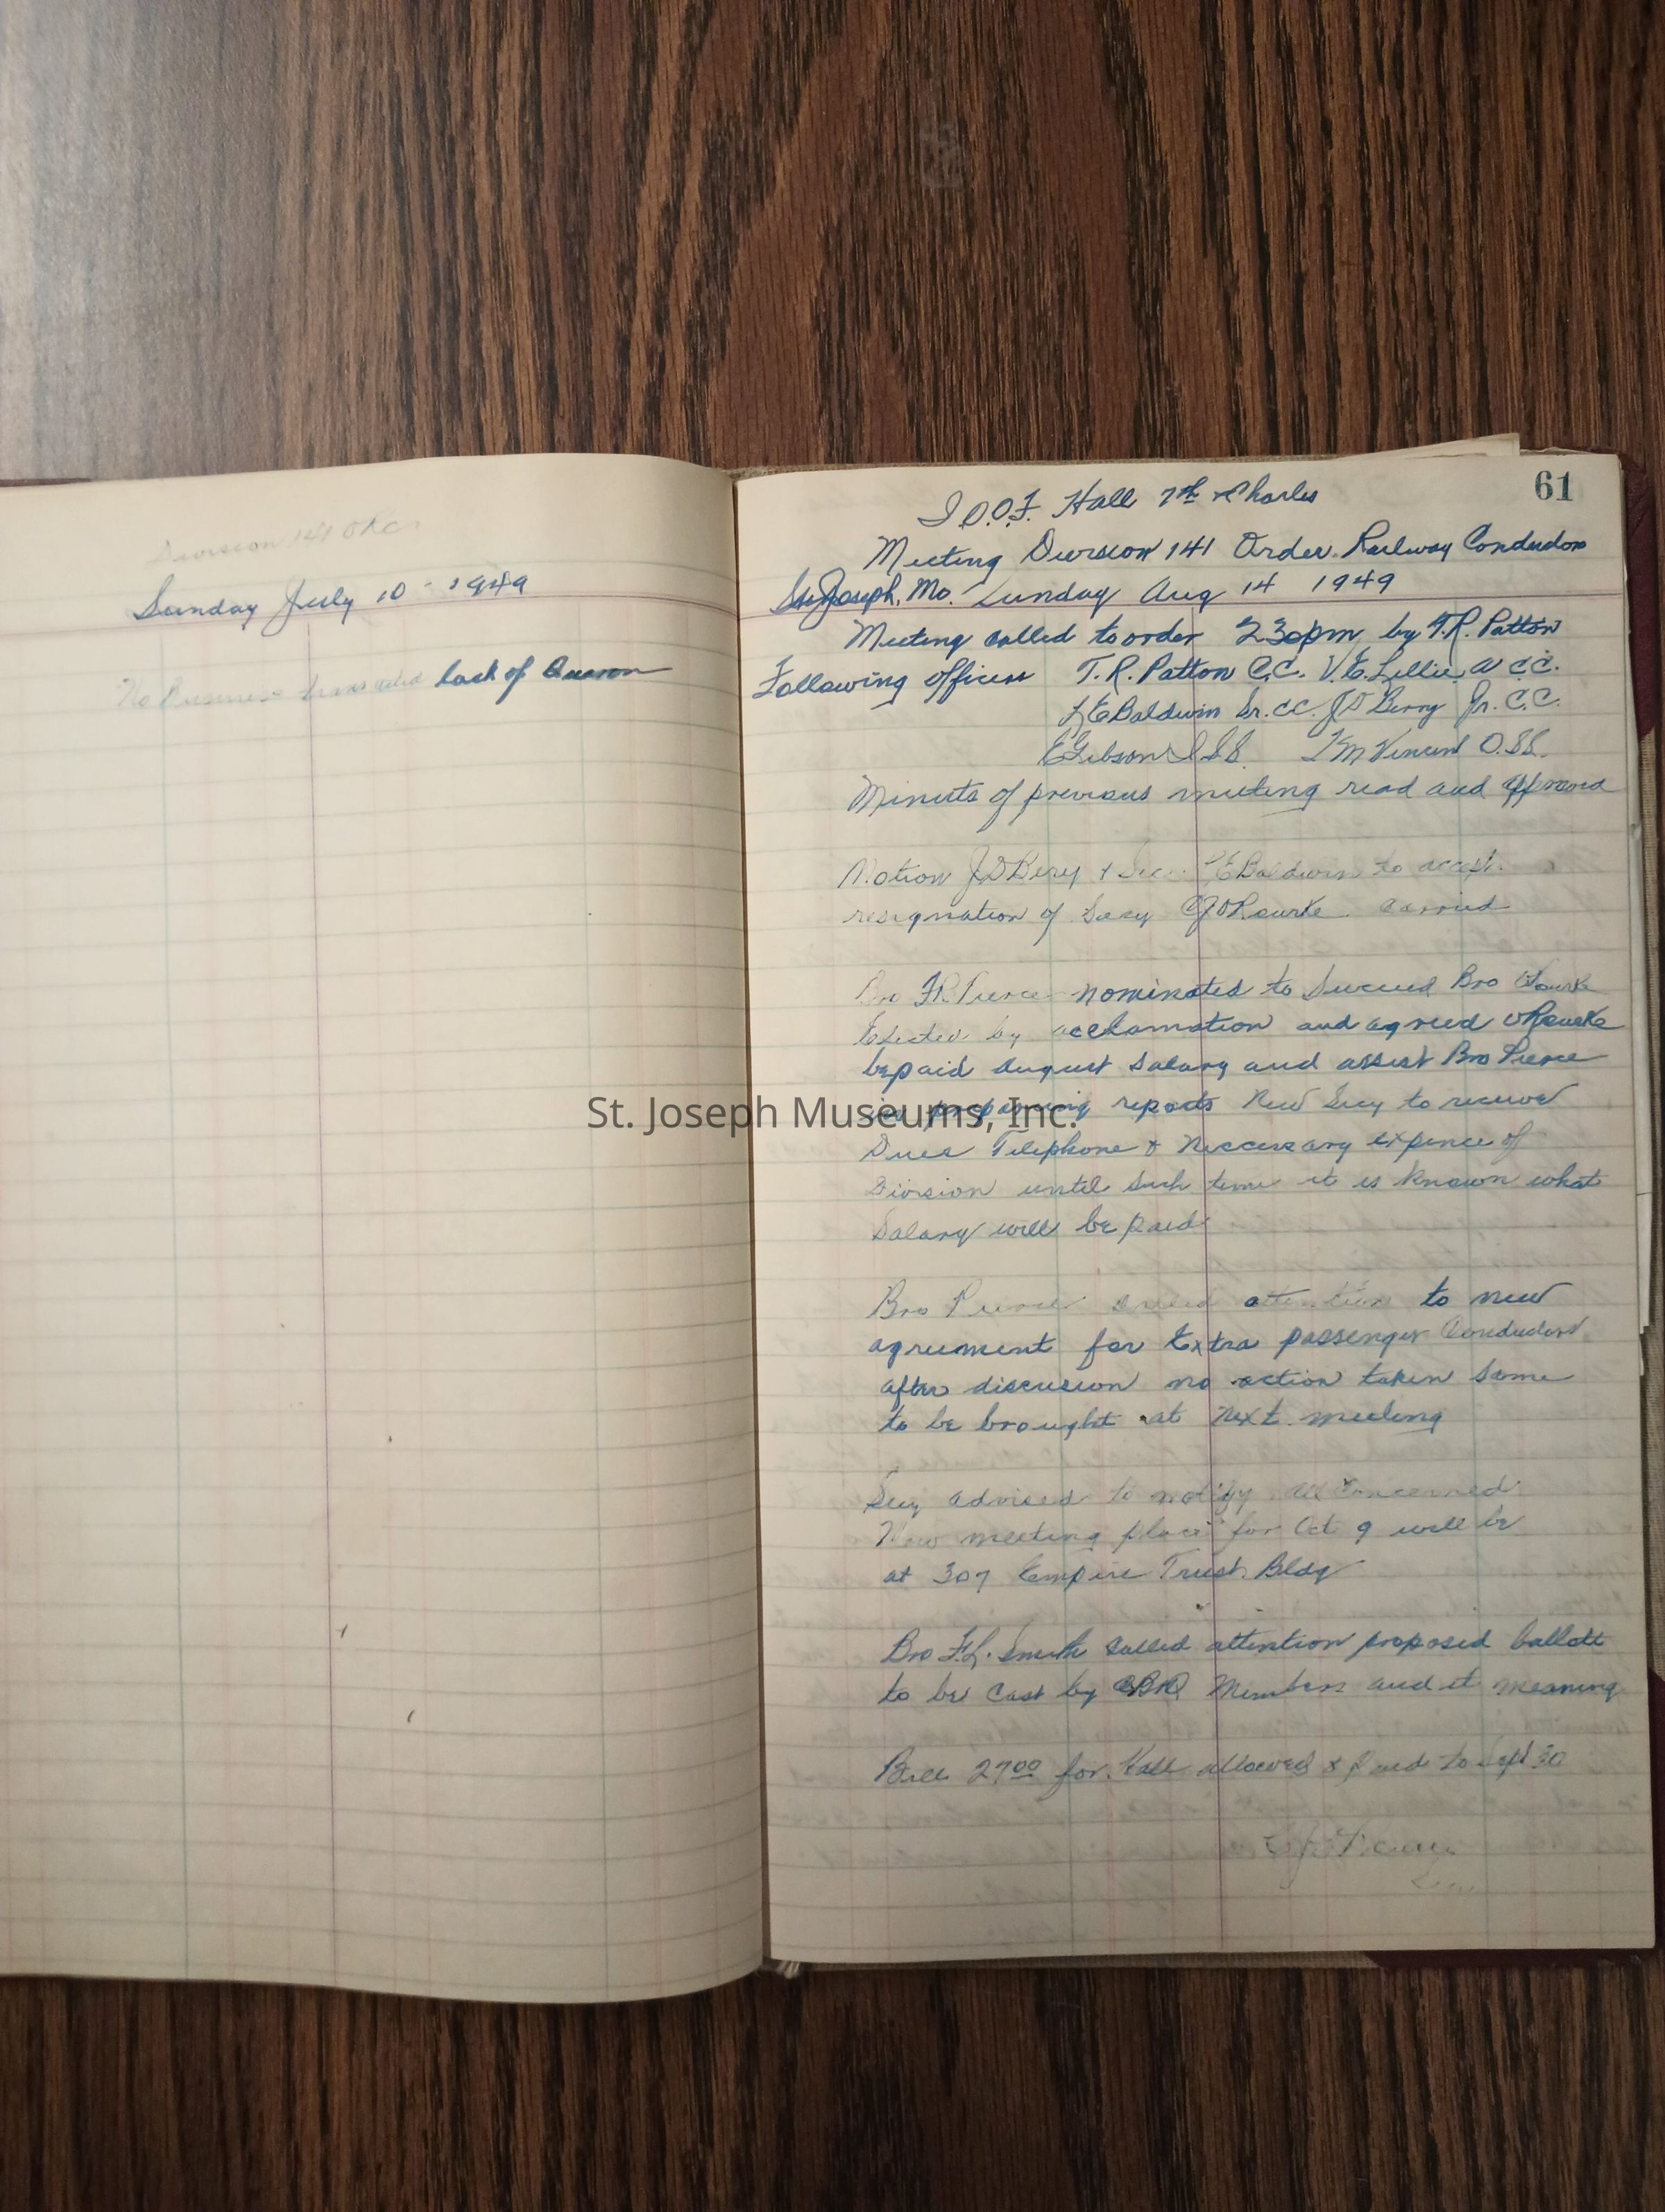 Division 141 ORC
Sunday July 10 - 1949
No Business transacted lack of Quoron
61
I.O.O.F. Hall 7th & Charles
Meeting Division 141 Order Railway Conductors
St Joseph, Mo. Sunday Aug 14 1949
Meeting called to order 230pm by T.R. Patton
Following officers T.R. Patton C.C. V.E. Lillie A C.C.
L E Baldwin Sr. CC. J D Berry Jr. C.C.
E Gibson I S S. T M Vincent O.SS.
Minuts of previous meeting read and approved
Motion J D Bery & Sec. L E Baldwin to accept
resignation of Secy C J O Rourke carried
Bro F R Pierce nominated to Succeed Bro O Rourke
Elected by acclamation and agreed O Rourke
be paid August Salary and assist Bro Pierce
in preparing reports New Secy to receive
Dues Telephone & Neccessary expence of
Division until such time it is Known what
Salary will be paid
Bro Pierce called attention to new
agreement for Extra passenger Conductors
after discusion no action taken Same
to be brought at next meeting
Secy advised to notify all Concerned
New meeting place for Oct 9 will be
at 307 Empire Trust Bldg
Bro F.L. Smith Called attention proposed ballott
to be Cast by CB&Q Members and it meaning
Bill 27 00 for Hall allowed & paid to Sept 30
Secy
St. Joseph Museums, Inc.